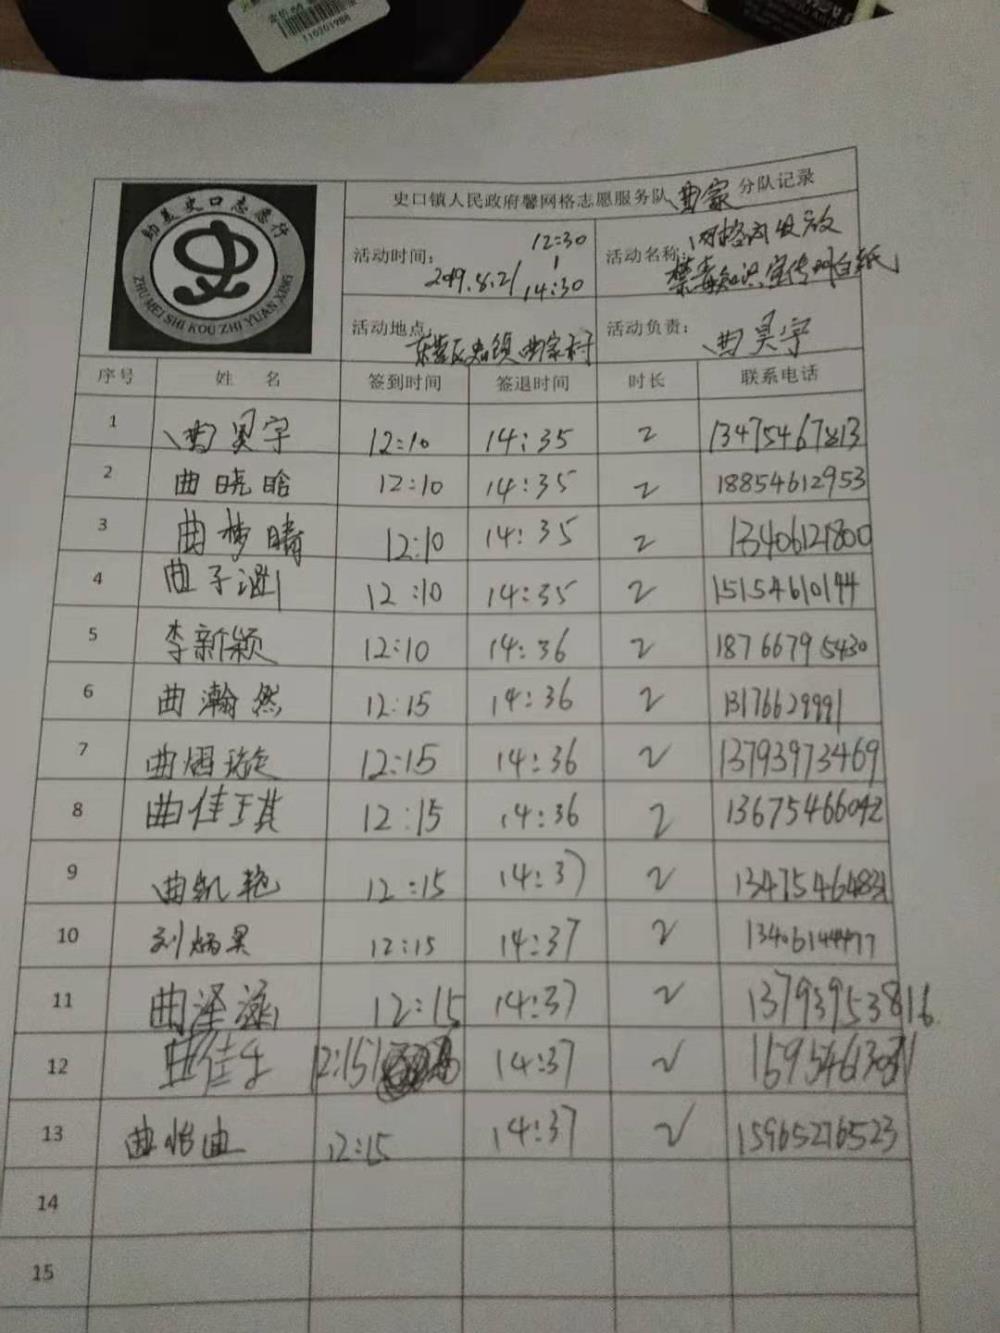 110201988
助美史口志愿行
ZHU MEI SHI KOU ZHI YUAN XING
史口镇人民政府馨网格志愿服务队 曲家 分队记录
活动时间: 2019.8.21 12:30 | 14:30
活动名称: 网格内发放
禁毒知识宣传明白纸
活动地点: 东营区史口镇曲家村
活动负责: 曲昊宇
序号 姓 名 签到时间 签退时间 时长 联系电话
1 曲昊宇 12:10 14:35 2 13475467813
2 曲晓晗 12:10 14:35 2 18854612953
3 曲梦晴 12:10 14:35 2 13406121800
4 曲子 12:10 14:35 2 15154610144
5 李新颖 12:10 14:36 2 18766795430
6 曲瀚然 12:15 14:36 2 13176629991
7 曲熠璇 12:15 14:36 2 13793973469
8 曲佳琪 12:15 14:36 2 13675466042
9 曲凯艳 12:15 14:37 2
10 刘炳昊 12:15 14:37 2 13406144477
11 曲泽 12:15 14:37 2 13793953816
12 曲佳 12:15 14:37 2
13 曲怡曲 12:15 14:37 2 15965276523
14
15